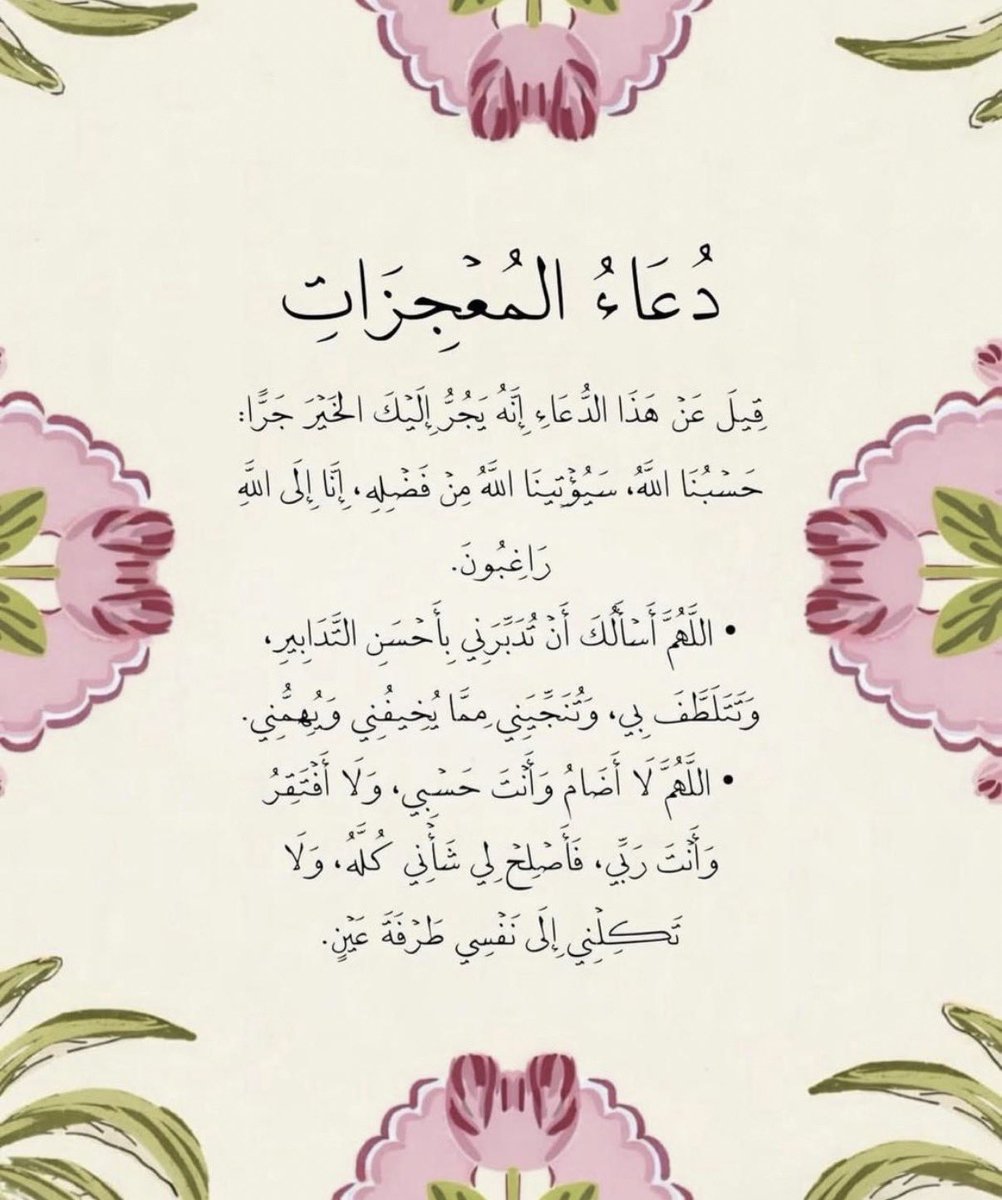 دُعَاءُ المُعْجِزَاتِ
قِيلَ عَنْ هَذَا الدُّعَاءِ إِنَّهُ يَجُرُّ إِلَيْكَ الخَيْرَ جَرًّا:
حَسْبُنَا اللَّهُ، سَيُؤْتِينَا اللَّهُ مِنْ فَضْلِهِ، إِنَّا إِلَى اللَّهِ
رَاغِبُونَ.
• اللَّهُمَّ أَسْأَلُكَ أَنْ تُدَبِّرَنِي بِأَحْسَنِ التَّدَابِيرِ،
وَتَتَلَطَّفَ بِي، وَتُنَجِّيَنِي مِمَّا يُخِيفُنِي وَيُهِمُّنِي.
• اللَّهُمَّ لَا أُضَامُ وَأَنْتَ حَسْبِي، وَلَا أَفْتَقِرُ
وَأَنْتَ رَبِّي، فَأَصْلِحْ لِي شَأْنِي كُلَّهُ، وَلَا
تَكِلْنِي إِلَى نَفْسِي طَرْفَةَ عَيْنٍ.